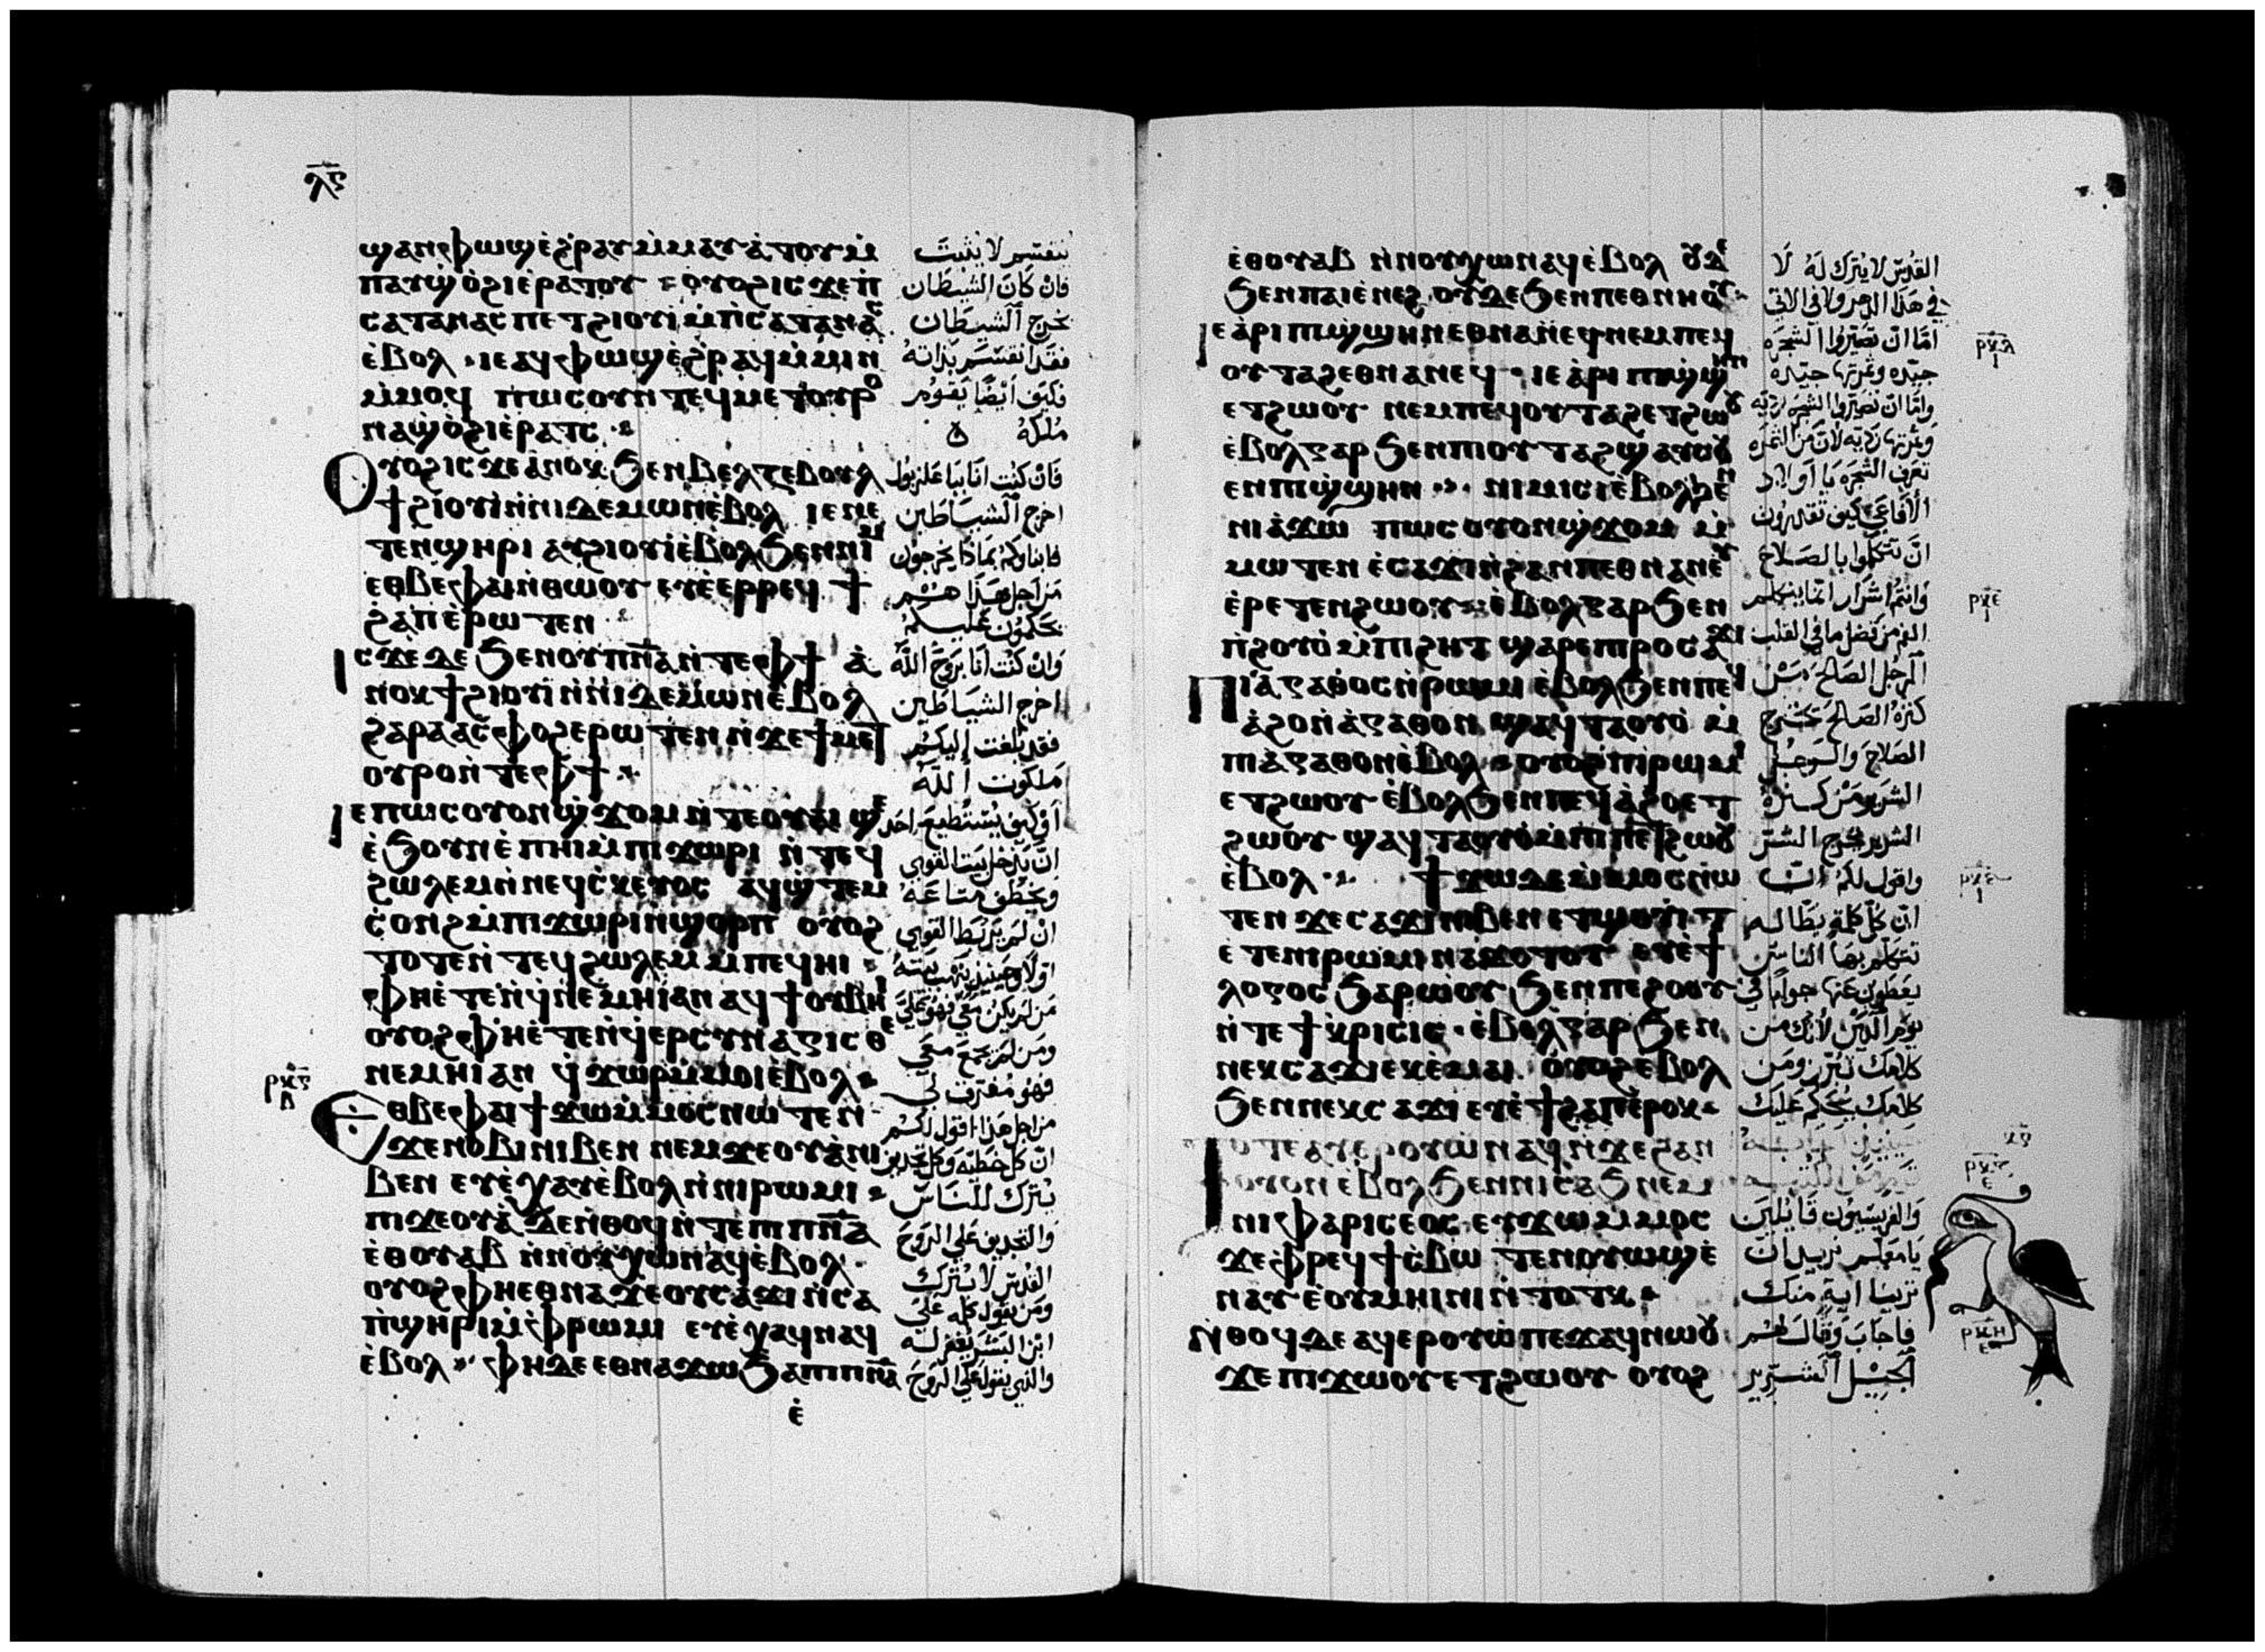 ⲗⲋ
ϣⲁⲛⲫⲱϣ ⲉϩⲣⲁⲩ ⲙⲙⲁⲩⲁⲧⲟⲩ ⲙ
ⲡⲁⲩϣ ⲟϩⲓ ⲉⲣⲁⲧⲟⲩ ⲟⲩⲟϩ ⲓⲥϫⲉ ⲡ
ⲥⲁⲧⲁⲛⲁⲥ ⲡⲉⲧϩⲓⲟⲩⲓ ⲙⲡⲥⲁⲧⲁⲛⲁⲥ
ⲉⲃⲟⲗ ⲓⲉ ⲁϥⲫⲱϣ ⲉϩⲣⲁϥ ⲙⲙⲓⲛ
ⲙⲙⲟϥ ⲡⲱⲥ ⲟⲩⲛ ⲧⲉϥⲙⲉⲧⲟⲩⲣⲟ
ⲛⲁϣ ⲟϩⲓ ⲉⲣⲁⲧⲥ
ⲟⲩⲟϩ ⲓⲥϫⲉ ⲁⲛⲟⲕ ϧⲉⲛ ⲃⲉⲗⲍⲉⲃⲟⲩⲗ
ϯϩⲓⲟⲩⲓ ⲛⲛⲓⲇⲉⲙⲱⲛ ⲉⲃⲟⲗ ⲓⲉ ⲛⲉ
ⲧⲉⲛϣⲏⲣⲓ ⲁⲩϩⲓⲟⲩⲓ ⲉⲃⲟⲗ ϧⲉⲛ ⲛⲓⲙ
ⲉⲑⲃⲉ ⲫⲁⲓ ⲛⲑⲱⲟⲩ ⲉⲩⲉⲉⲣⲣⲉϥϯ
ϩⲁⲡ ⲉⲣⲱⲧⲉⲛ
ⲓⲥϫⲉ ⲇⲉ ϧⲉⲛ ⲟⲩⲡⲛⲁ ⲛⲧⲉ ⲫϯ ⲁ
ⲛⲟⲕ ϯϩⲓⲟⲩⲓ ⲛⲛⲓⲇⲉⲙⲱⲛ ⲉⲃⲟⲗ
ϩⲁⲣⲁ ⲁⲥⲫⲟϩ ⲉⲣⲱⲧⲉⲛ ⲛϫⲉ ϯⲙⲉⲧ
ⲟⲩⲣⲟ ⲛⲧⲉ ⲫϯ
ⲓⲉ ⲡⲱⲥ ⲟⲩⲟⲛ ϣϫⲟⲙ ⲛⲧⲉ ⲟⲩⲁⲓ ϣⲉ
ⲉϧⲟⲩⲛ ⲉⲡⲏⲓ ⲙⲡⲓϫⲱⲣⲓ ⲛⲧⲉϥ
ϩⲱⲗⲉⲙ ⲛⲛⲉϥⲥⲕⲉⲩⲟⲥ ⲁϥϣⲧⲉⲙ
ⲥⲟⲛϩ ⲙⲡⲓϫⲱⲣⲓ ⲛϣⲟⲣⲡ ⲟⲩⲟϩ
ⲧⲟⲧⲉ ⲛⲧⲉϥϩⲱⲗⲉⲙ ⲙⲡⲉϥⲏⲓ
ⲫⲏ ⲉⲧⲉⲛϥⲛⲉⲙⲏⲓ ⲁⲛ ⲁϥϯ ⲟⲩⲃⲏⲓ
ⲟⲩⲟϩ ⲫⲏ ⲉⲧⲉⲛϥⲉⲣⲥⲩⲛⲁⲅⲓⲥⲑⲉ
ⲛⲉⲙⲏⲓ ⲁⲛ ϥϫⲱⲣ ⲙⲙⲟⲓ ⲉⲃⲟⲗ
ⲉⲑⲃⲉ ⲫⲁⲓ ϯϫⲱ ⲙⲙⲟⲥ ⲛⲱⲧⲉⲛ
ϫⲉ ⲛⲟⲃⲓ ⲛⲓⲃⲉⲛ ⲛⲉⲙ ϫⲉⲟⲩⲁ ⲛⲓ
ⲃⲉⲛ ⲉⲩⲉⲭⲁⲩ ⲉⲃⲟⲗ ⲛⲛⲓⲣⲱⲙⲓ
ⲡⲓϫⲉⲟⲩⲁ ⲇⲉ ⲛⲑⲟϥ ⲛⲧⲉ ⲡⲓⲡⲛⲁ
ⲉⲑⲟⲩⲁⲃ ⲛⲛⲟⲩⲭⲱ ⲛⲁϥ ⲉⲃⲟⲗ
ⲟⲩⲟϩ ⲫⲏ ⲉⲑⲛⲁϫⲉ ⲟⲩⲥⲁϫⲓ ⲛⲥⲁ
ⲡϣⲏⲣⲓ ⲙⲫⲣⲱⲙⲓ ⲉⲩⲉⲭⲁϥ ⲛⲁϥ
ⲉⲃⲟⲗ ⲫⲏ ⲇⲉ ⲉⲑⲛⲁϫⲱ ϧⲁ ⲡⲓⲡⲛⲁ
ⲉ
ⲣⲕⲋ
ⲃ
ينقسم لا يثبت
فان كان الشيطان
يخرج الشيطان
فقد انقسم بذاته
فكيف ايضًا يقوم
ملكه
فان كنت انا ببا علزبول
اخرج الشياطين
فابناوكم بماذا يخرجون
من اجل هذا هم
يحكمون عليكم
وان كنت انا بروح الله
اخرج الشياطين
فقد بلغت اليكم
ملكوت الله
او كيف يستطيع احد
ان يدخل بيت القوي
ويخطف متاعه
ان لم يربط القوي
اولا وحينيذ ينهب بيته
من لم يكن معي فهو علي
ومن لم يجمع معي
فهو مفرق لي
من اجل هذا اقول لكم
ان كل خطيه وكل تجديف
يترك للناس
والتجديف علي الروح
القدس لا يترك
ومن يقول كلمه علي
ابن البشر يغفر له
والذي يقول علي الروح
ⲉⲑⲟⲩⲁⲃ ⲛⲛⲟⲩⲭⲱ ⲛⲁϥ ⲉⲃⲟⲗ ⲟⲩⲇⲉ
ϧⲉⲛ ⲡⲁⲓⲉⲛⲉϩ ⲟⲩⲇⲉ ϧⲉⲛ ⲡⲉⲑⲛⲏⲟⲩ
ⲓⲉ ⲁⲣⲓ ⲡⲓϣϣⲏⲛ ⲉⲑⲛⲁⲛⲉϥ ⲛⲉⲙ ⲡⲉϥ
ⲟⲩⲧⲁϩ ⲉⲑⲛⲁⲛⲉϥ ⲓⲉ ⲁⲣⲓ ⲡⲓϣϣⲏⲛ
ⲉⲧϩⲱⲟⲩ ⲛⲉⲙ ⲡⲉϥⲟⲩⲧⲁϩ ⲉⲧϩⲱⲟⲩ
ⲉⲃⲟⲗ ⲅⲁⲣ ϧⲉⲛ ⲡⲓⲟⲩⲧⲁϩ ϣⲁⲩⲥⲟⲩ
ⲉⲛ ⲡⲓϣϣⲏⲛ ⲛⲓⲙⲓⲥⲓ ⲉⲃⲟⲗ ϧⲉⲛ
ⲛⲓⲁϫⲱ ⲡⲱⲥ ⲟⲩⲟⲛ ϣϫⲟⲙ ⲙ
ⲙⲱⲧⲉⲛ ⲉⲥⲁϫⲓ ⲛϩⲁⲛⲡⲉⲑⲛⲁⲛⲉⲩ
ⲉⲣⲉⲧⲉⲛϩⲱⲟⲩ ⲉⲃⲟⲗ ⲅⲁⲣ ϧⲉⲛ
ⲡϩⲟⲩⲟ ⲙⲡⲓϩⲏⲧ ϣⲁⲣⲉ ⲡⲓⲣⲟ ⲥⲁϫⲓ
ⲡⲓⲁⲅⲁⲑⲟⲥ ⲛⲣⲱⲙⲓ ⲉⲃⲟⲗ ϧⲉⲛ ⲡⲉϥ
ⲁϩⲟ ⲛⲁⲅⲁⲑⲟⲛ ϣⲁϥⲧⲁⲟⲩⲟ ⲙ
ⲡⲓⲁⲅⲁⲑⲟⲛ ⲉⲃⲟⲗ ⲟⲩⲟϩ ⲡⲓⲣⲱⲙⲓ
ⲉⲧϩⲱⲟⲩ ⲉⲃⲟⲗ ϧⲉⲛ ⲡⲉϥⲁϩⲟ ⲉⲧ
ϩⲱⲟⲩ ϣⲁϥⲧⲁⲟⲩⲟ ⲙⲡⲓⲡⲉⲧϩⲱⲟⲩ
ⲉⲃⲟⲗ ϯϫⲱ ⲇⲉ ⲙⲙⲟⲥ ⲛⲱ
ⲧⲉⲛ ϫⲉ ⲥⲁϫⲓ ⲛⲓⲃⲉⲛ ⲉⲧϣⲟⲩⲓⲧ
ⲉⲧⲉ ⲛⲓⲣⲱⲙⲓ ⲛⲁϫⲟⲧⲟⲩ ⲉⲩⲉϯ
ⲗⲟⲅⲟⲥ ϧⲁⲣⲱⲟⲩ ϧⲉⲛ ⲡⲉϩⲟⲟⲩ
ⲛⲧⲉ ϯⲕⲣⲓⲥⲓⲥ ⲉⲃⲟⲗ ⲅⲁⲣ ϧⲉⲛ
ⲛⲉⲕⲥⲁϫⲓ ⲉⲕⲉⲙⲁⲓ ⲟⲩⲟϩ ⲉⲃⲟⲗ
ϧⲉⲛ ⲛⲉⲕⲥⲁϫⲓ ⲉⲩⲉϯϩⲁⲡ ⲉⲣⲟⲕ
ⲧⲟⲧⲉ ⲁⲩⲉⲣⲟⲩⲱ ⲛⲁϥ ⲛϫⲉ ϩⲁⲛ
ⲟⲩⲟⲛ ⲉⲃⲟⲗ ϧⲉⲛ ⲛⲓⲥⲁϧ ⲛⲉⲙ
ⲛⲓⲫⲁⲣⲓⲥⲉⲟⲥ ⲉⲩϫⲱ ⲙⲙⲟⲥ
ϫⲉ ⲫⲣⲉϥϯⲥⲃⲱ ⲧⲉⲛⲟⲩⲱϣ ⲉ
ⲛⲁⲩ ⲉⲟⲩⲙⲏⲓⲛⲓ ⲛⲧⲟⲧⲕ
ⲛⲑⲟϥ ⲇⲉ ⲁϥⲉⲣⲟⲩⲱ ⲡⲉϫⲁϥ ⲛⲱⲟⲩ
ϫⲉ ⲡⲓϫⲱⲟⲩ ⲉⲧϩⲱⲟⲩ ⲟⲩⲟϩ
القدس لا يترك له لا
في هذا الدهر ولا في الاتي
اما ان تصيروا الشجره
جيده وثمرتها جيده
واما ان تصيروا الشجره رديه
وثمرتها رديه لان من الثمره
تعرف الشجره يا اولاد
الافاعي كيف تقدرون
ان تتكلموا بالصلاح
وانتم اشرار انما يتكلم
الفم من فضل ما في القلب
الرجل الصالح من
كنزه الصالح يخرج
الصلاح والرجل
الشرير من كنزه
الشرير يخرج الشر
واقول لكم ان
ان كل كلمه بطاله
تتكلم بها الناس
يعطون عنها جوابا في
يوم الدين لانك من
كلامك تتزر ومن
كلامك يحكم عليك
والفريسيون قايلين
يا معلم نريد ان
ترينا اية منك
فاجاب وقال لهم
الجيل الشرير
ⲣⲕⲇ
ⲣⲕⲉ
ⲣⲕⲋ
ⲣⲕⲏ